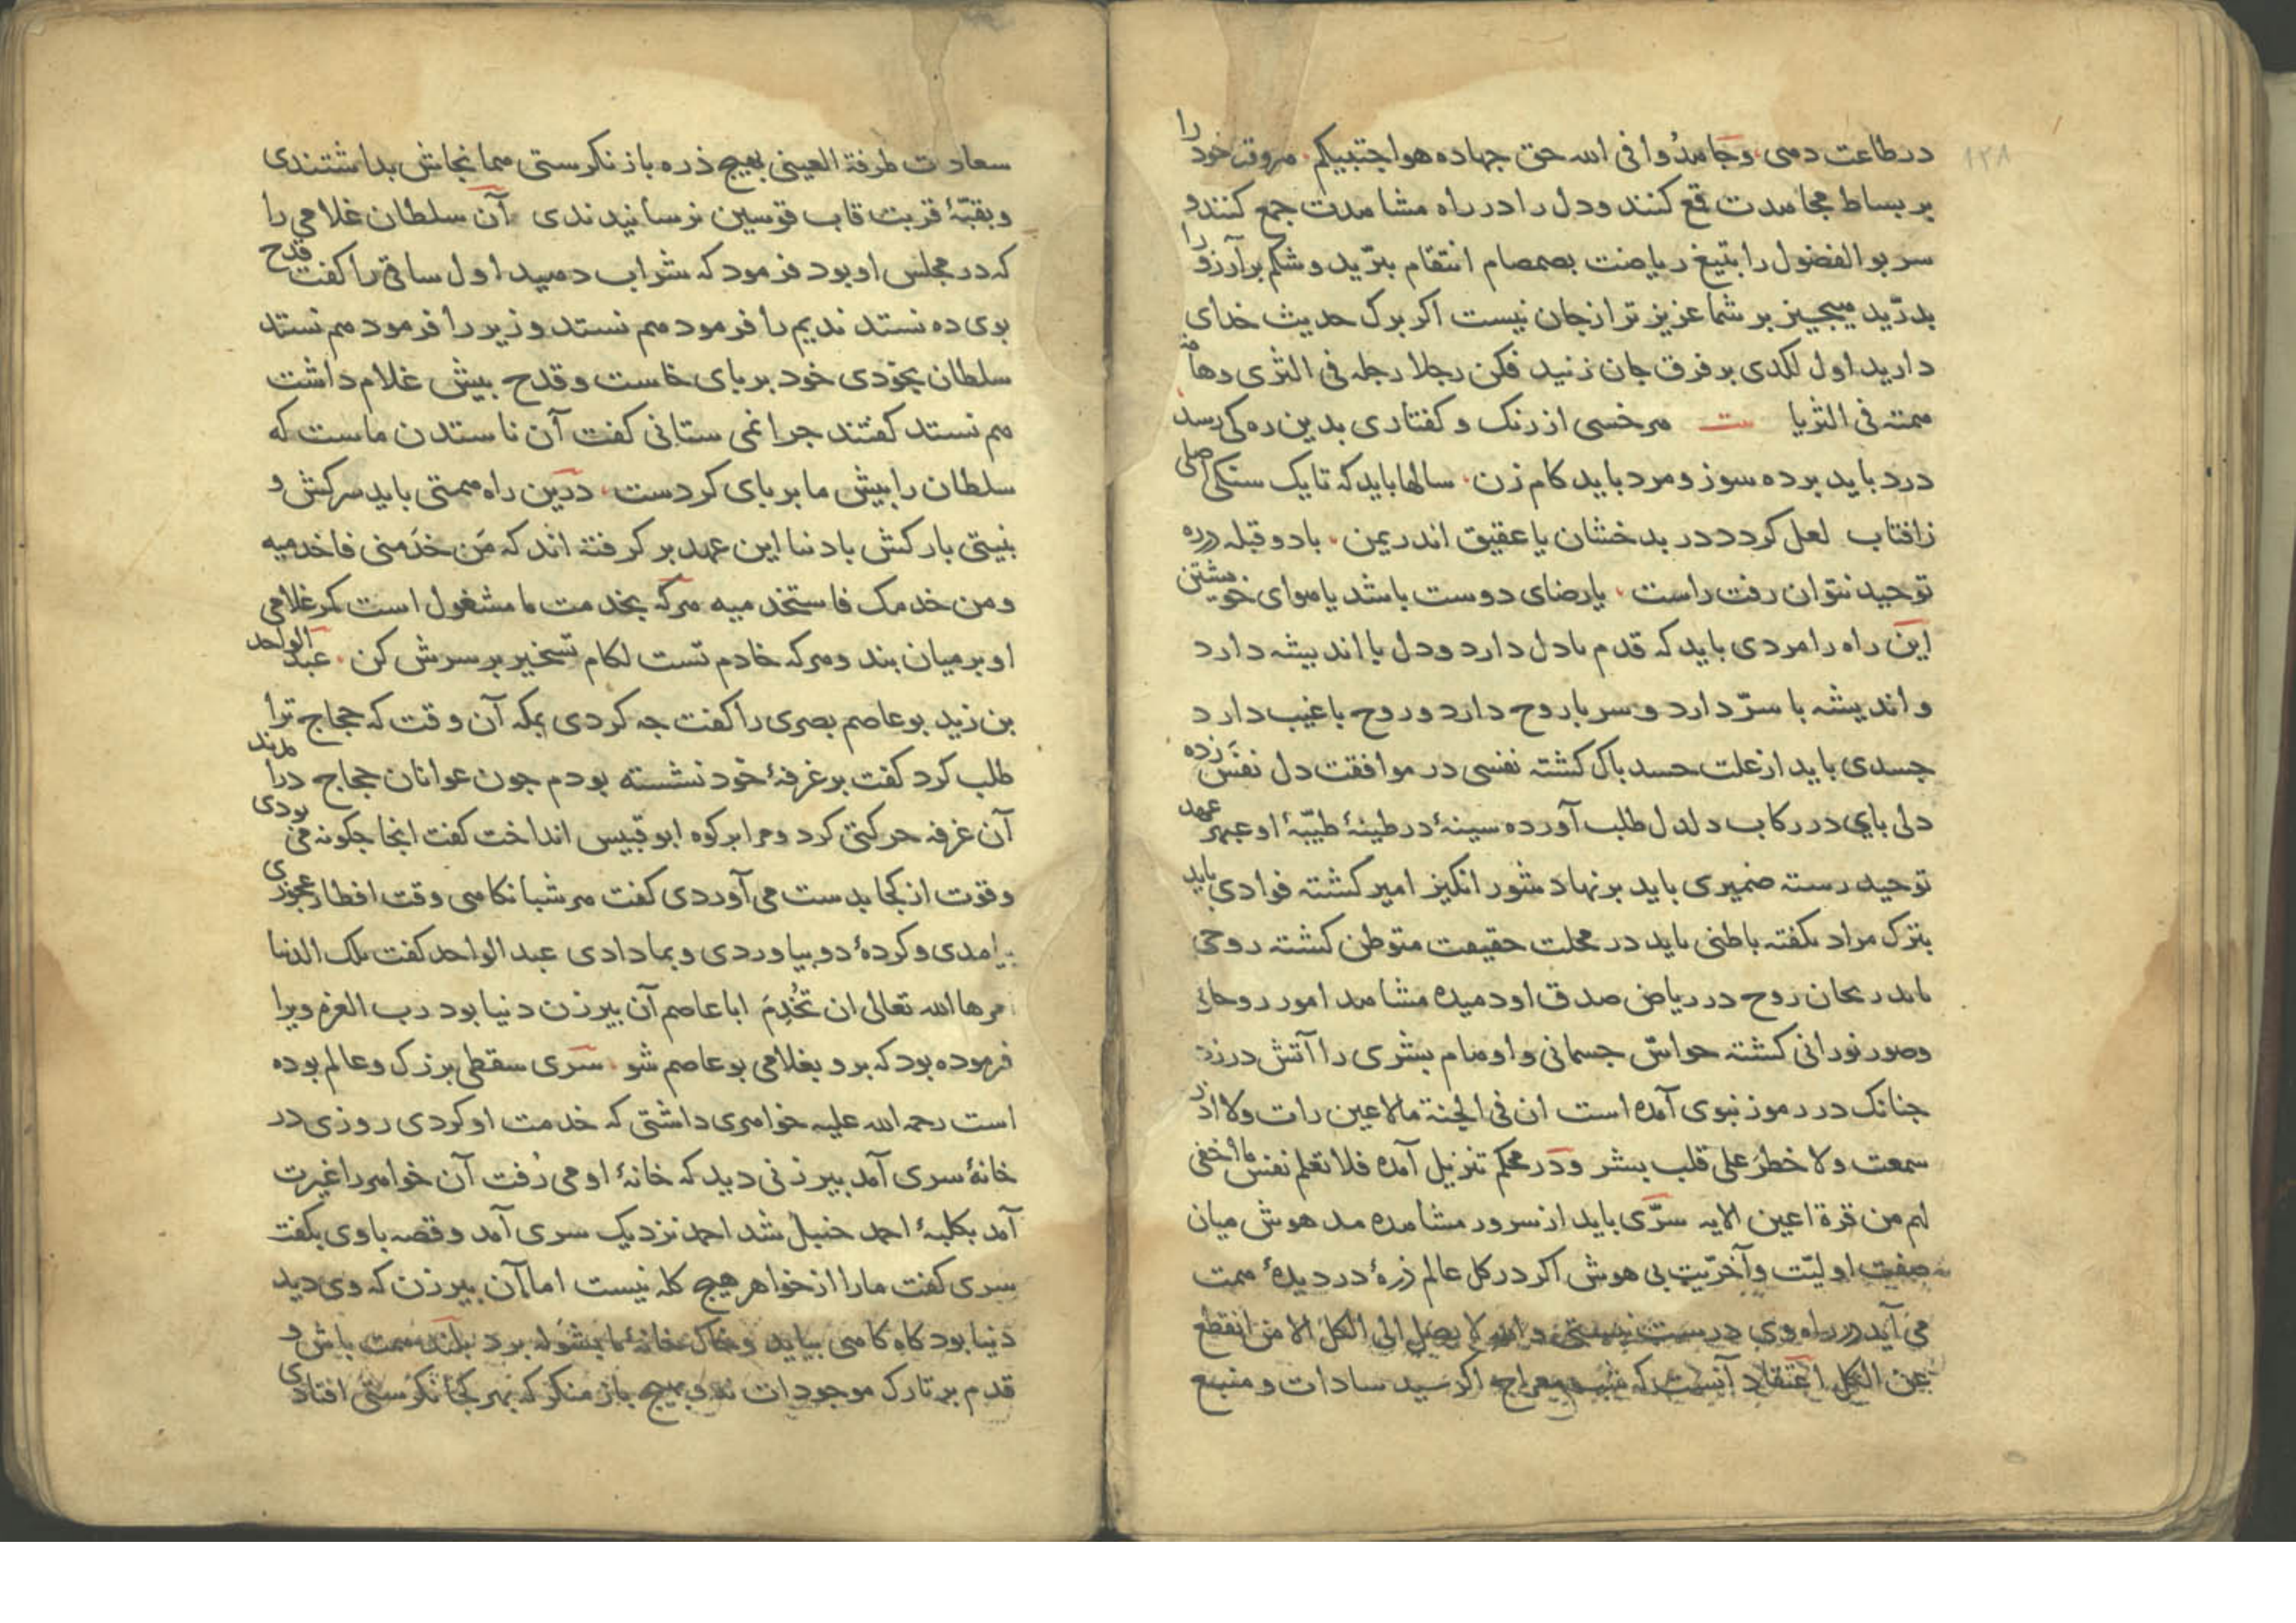 ۱۲۸
در طاعت دهی، وجاهدوا فی الله حق جهاده هو اجتبیکم، هر وقت خود را
بر بساط مجاهدت قمع کنند و دل را در راه مشاهدت جمع کنند و
سر بوالفضول را بتیغ ریاضت بصمصام انتقام ببرّید و شکم بر آرزو را
بدرّید هیجیز بر شما عزیز تر از جان نیست اکر برک حدیث خدای
دارید اول لکدی بر فرق جان زنید فکن رجلا رجله فی الثری وهامة
همته فی الثریا بیت هر خسی از رنک و کفتاری بدین ره کی رسد
درد باید برده سوز و مرد باید کام زن، سالها باید که تا یک سنک اصلی
زافتاب لعل کردد در بدخشان یا عقیق اندر یمن، با دو قبله در ره
توحید نتوان رفت راست، یا رضای دوست باشد یا هوای خویشتن
این راه را مردی باید که قدم با دل دارد و دل با اندیشه دارد
و اندیشه با سرّ دارد و سر با روح دارد و روح با غیب دارد
جسدی باید از علت حسد باک کشته نفسی در موافقت دل نفس زده
دلی بای در رکاب دلدل طلب آورده سینهٔ در طینهٔ طیّبهٔ او عبهر عهد
توحید رسته ضمیری باید بر نهاد شور انکیز امیر کشته فوادی باید
بترک مراد بکفته باطنی باید در محلت حقیقت متوطن کشته روحی
باید ریحان روح در ریاض صدق او دمیده مشاهد امور روحانی
وصور نورانی کشته حواسّ جسمانی و اوهام بشری را آتش در زده
جنانک در رموز نبوی آمده است ان فی الجنة مالا عین رات ولا اذن
سمعت ولا خطر علی قلب بشر و در محکم تنزیل آمده فلا تعلم نفس ما اخفی
لهم من قرة اعین الایه سرّی باید از سرور مشاهده مدهوش میان
صفت اولیّت و آخریّت بی هوش اکر در کل عالم ذرهٔ در دیدهٔ همت
می آید در راه وی درست نیستی والله لا یصل الی الکل الا من انقطع
عن الکل اعتقاد آنست که شب معراج اکر سید سادات و منبع
سعادت طرفة العینی بهیج ذره باز نکرستی همانجاش بداشتندی
و بقبّهٔ قربت قاب قوسین نرسانیدندی آن سلطان غلامی را
که در مجلس او بود فرمود که شراب دهید اول ساقی را کفت قدح
بوی ده نستد ندیم را فرمود هم نستد وزیر را فرمود هم نستد
سلطان بخودی خود بر بای خاست و قدح بیش غلام داشت
هم نستد کفتند جرا نمی ستانی کفت آن ناستدن ماست که
سلطان را بیش ما بر بای کردست، درین راه همتی باید سرکش و
نیستی بارکش با دنیا این عهد بر کرفته اند که من خدمنی فاخدمیه
ومن خدمک فاستخدمیه هر که بخدمت ما مشغول است کمر غلامی
او بر میان بند و هر که خادم تست لکام تسخیر بر سرش کن، عبد الواحد
بن زید بوعاصم بصری را کفت جه کردی بمکه آن وقت که حجاج ترا
طلب کرد کفت بر غرفهٔ خود نشسته بودم جون عوانان حجاج در آمدند
آن غرفه حرکتی کرد و مرا بر کوه ابو قبیس انداخت کفت آنجا جکونه می بودی
وقوت از کجا بدست می آوردی کفت هر شبانکاهی وقت افطار عجوزی
بیامدی و کردهٔ دو بیاوردی و بما دادی عبد الواحد کفت تلک الدنیا
امرها الله تعالی ان تخدم ابا عاصم آن بیر زن دنیا بود رب العزه ویرا
فرموده بود که برو بغلامی بوعاصم شو، سری سقطی بزرک و عالم بوده
است رحمه الله علیه خواهری داشتی که خدمت او کردی روزی در
خانهٔ سری آمد بیرزنی دید که خانهٔ او می رفت آن خواهر را غیرت
آمد بکلبهٔ احمد حنبل شد احمد نزدیک سری آمد و قصه با وی بکفت
سری کفت مارا از خواهر هیج کله نیست اما آن بیر زن که وی دید
دنیا بود کاه کاهی بیاید و خاک خانهٔ ما بشوله برد بلند همت باش و
قدم بر تارک موجودات نه و بهیج باز منکر که بهر کجا نکرستی افتادی